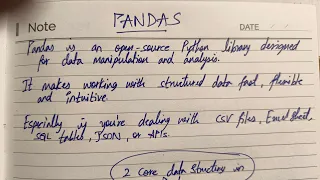 Note
PANDAS
DATE
Pandas is an open-source Python library designed
for data manipulation and analysis.
It makes working with structured data fast, flexible
and intuitive.
Especially if you're dealing with CSV files, Excel sheet,
SQL tables, JSON, or APIs.
2 core data structure in